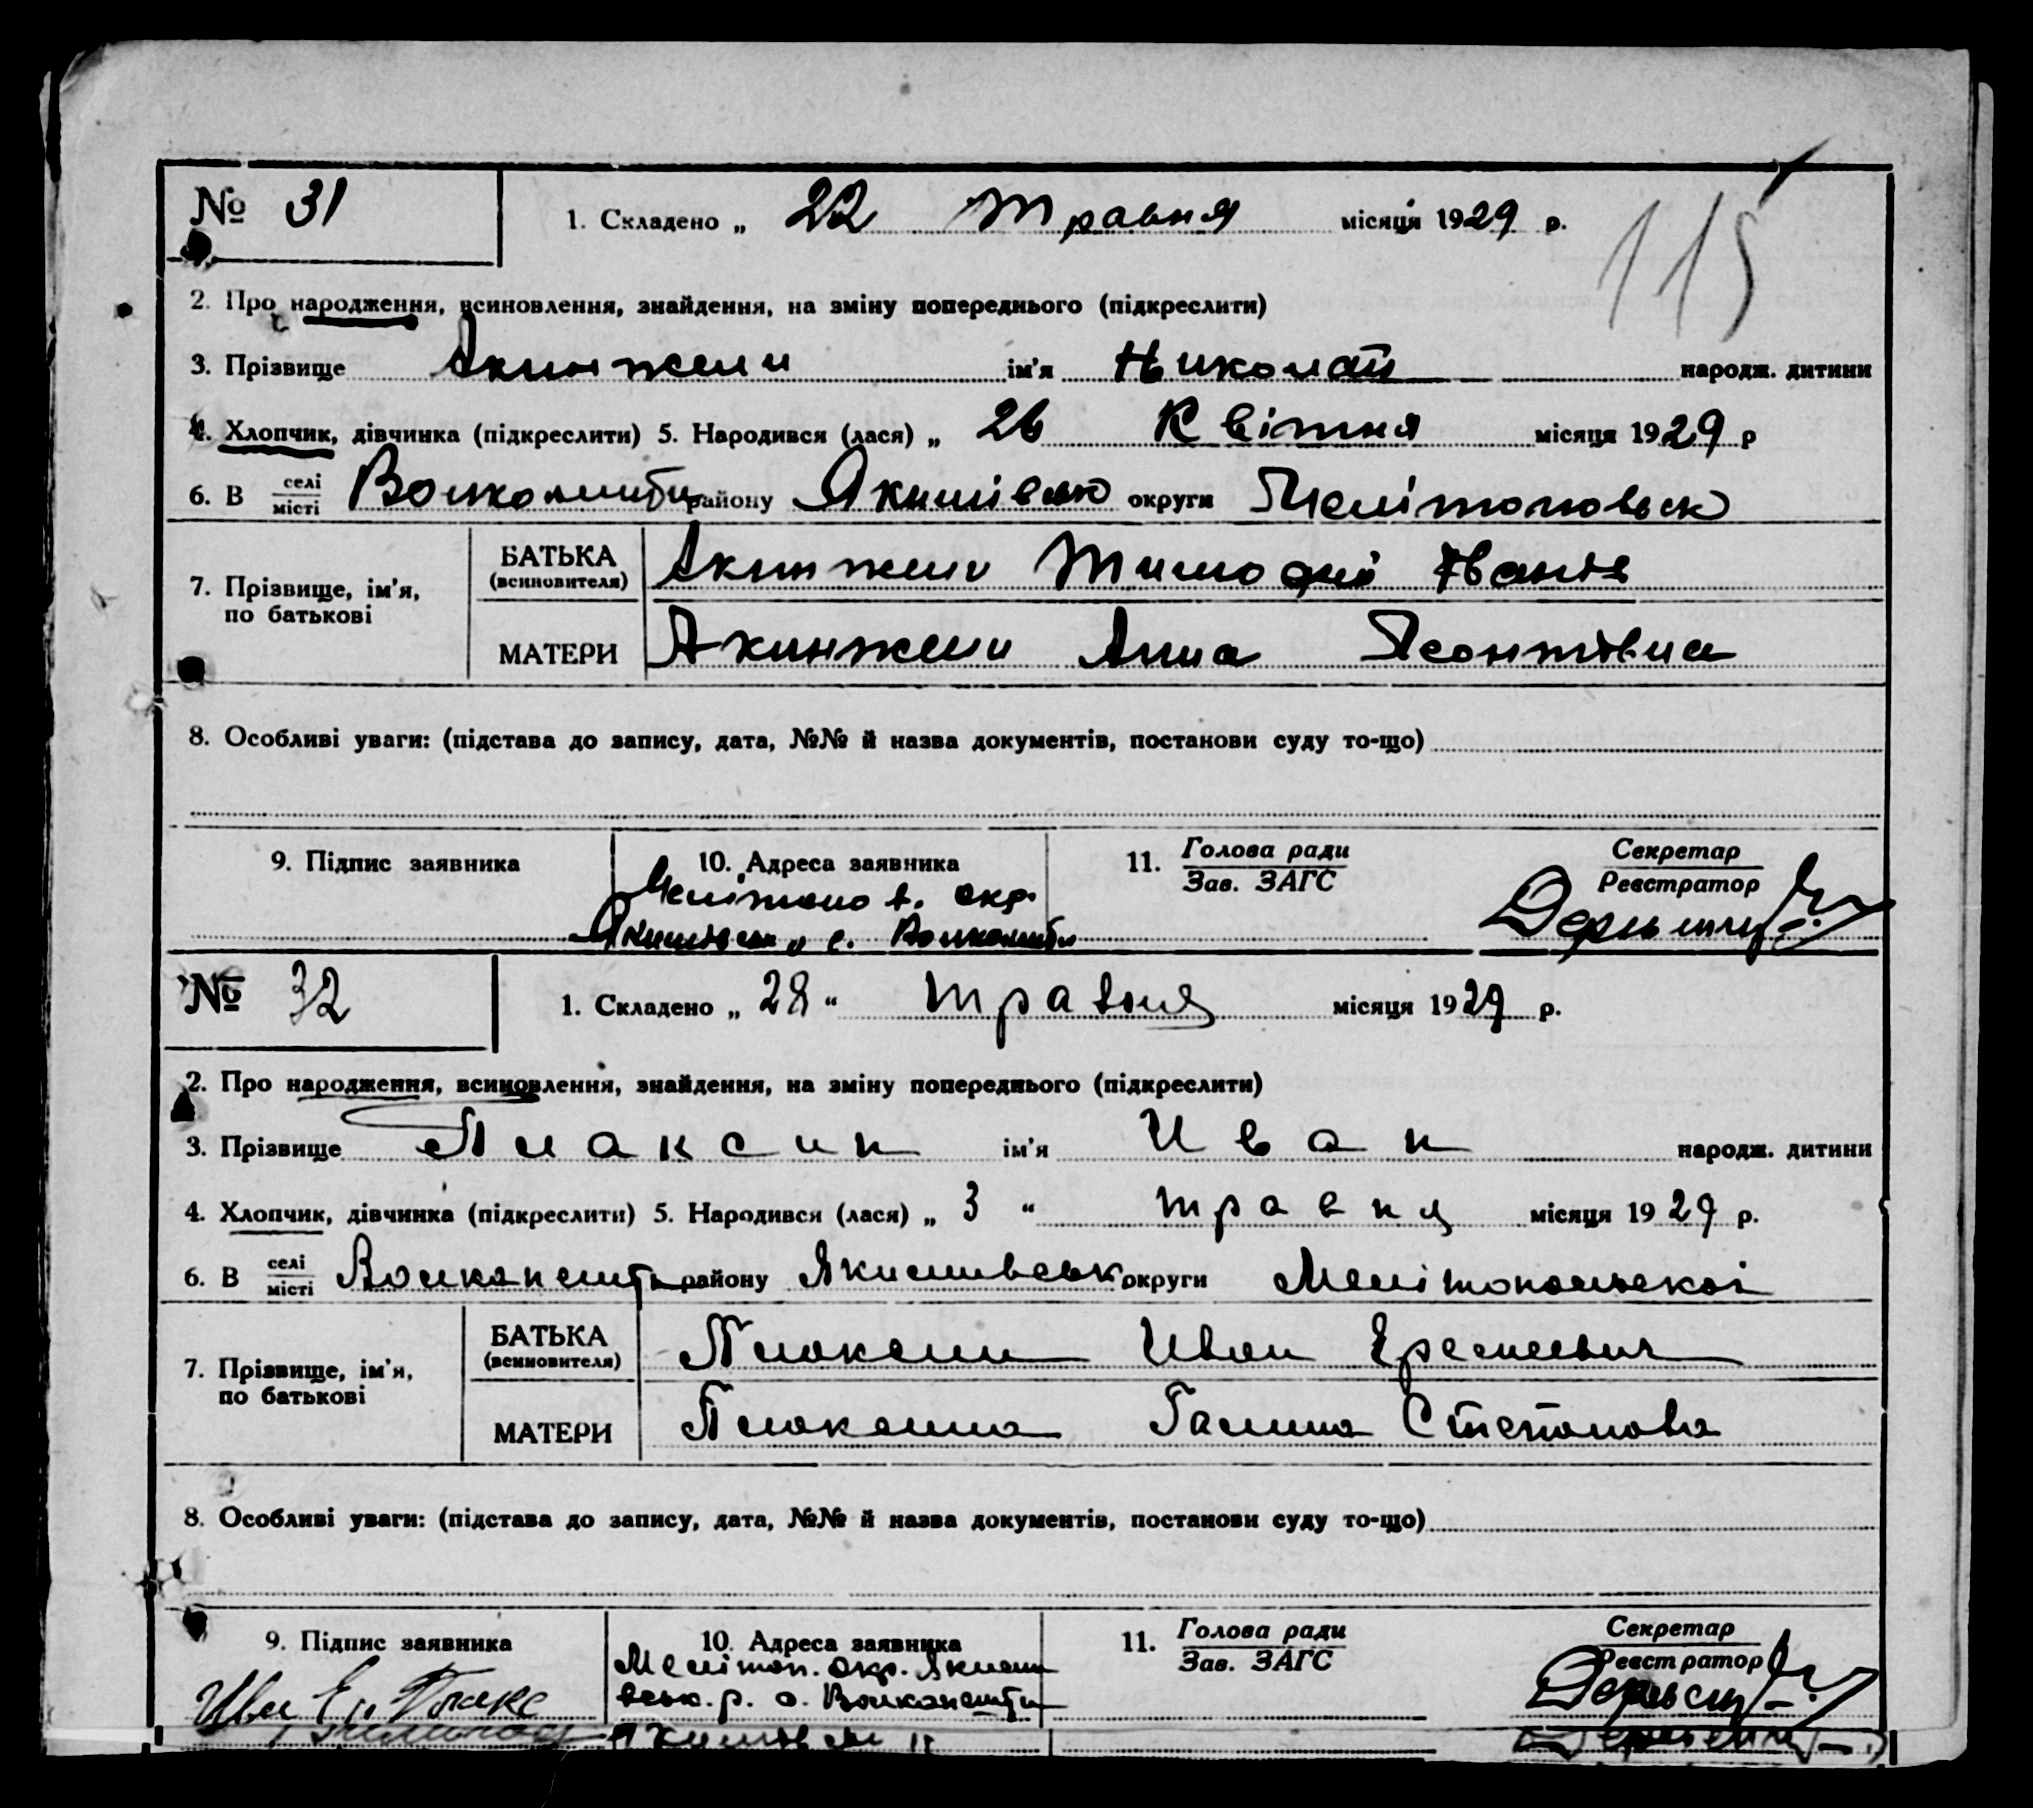 № 31 1. Складено „ 22 Травня місяця 1929 р.
115
2. Про народження, всиновлення, знайдення, на зміну попереднього (підкреслити)
3. Прізвище Акинжели ім'я Николай народж. дитини
4. Хлопчик, дівчинка (підкреслити) 5. Народився (лася) „ 26 Квітня місяця 1929 р
6. В селі місті Волконешти району Якимівсько округи Мелітопольськ
7. Прізвище, ім'я, по батькові БАТЬКА (всиновителя) Акинжели Тимофій Іванів
МАТЕРИ Акинжели Анна Леонтівна
8. Особливі уваги: (підстава до запису, дата, №№ й назва документів, постанови суду то-що)
9. Підпис заявника 10. Адреса заявника 11. Голова ради Зав. ЗАГС Секретар Реєстратор
Мелітопо в. окр.
с. Волконешти
№ 32 1. Складено „ 28 “ травня місяця 1929 р.
2. Про народження, всиновлення, знайдення, на зміну попереднього (підкреслити)
3. Прізвище Плаксин ім'я Иван народж. дитини
4. Хлопчик, дівчинка (підкреслити) 5. Народився (лася) „ 3 “ травня місяця 1929 р.
6. В селі місті Волканешты району Якимивськ округи Мелітопольскоі
7. Прізвище, ім'я, по батькові БАТЬКА (всиновителя) Плаксин Иван Еремеевич
МАТЕРИ Плаксина Галина Степанова
8. Особливі уваги: (підстава до запису, дата, №№ й назва документів, постанови суду то-що)
9. Підпис заявника 10. Адреса заявника 11. Голова ради Зав. ЗАГС Секретар Реєстратор
Мелітоп. окр. Якими
вськ. р. с. Волканешти